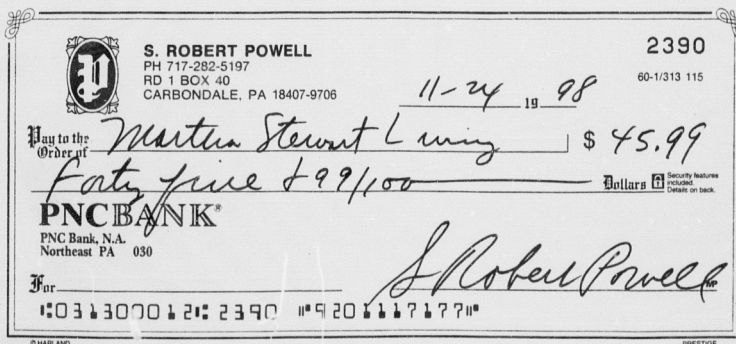 S. ROBERT POWELL
PH 717-282-5197
RD 1 BOX 40
CARBONDALE, PA 18407-9706
2390
60-1/313 115
11-24 19 98
Pay to the Order of Martha Stewart Living $ 45.99
Forty five & 99/100 Dollars Security features included. Details on back.
PNCBANK®
PNC Bank, N.A.
Northeast PA 030
For
S Robert Powell
MP
⑆031300012⑆ 2390 ⑈9201117177⑈
© HARLAND
PRESTIGE